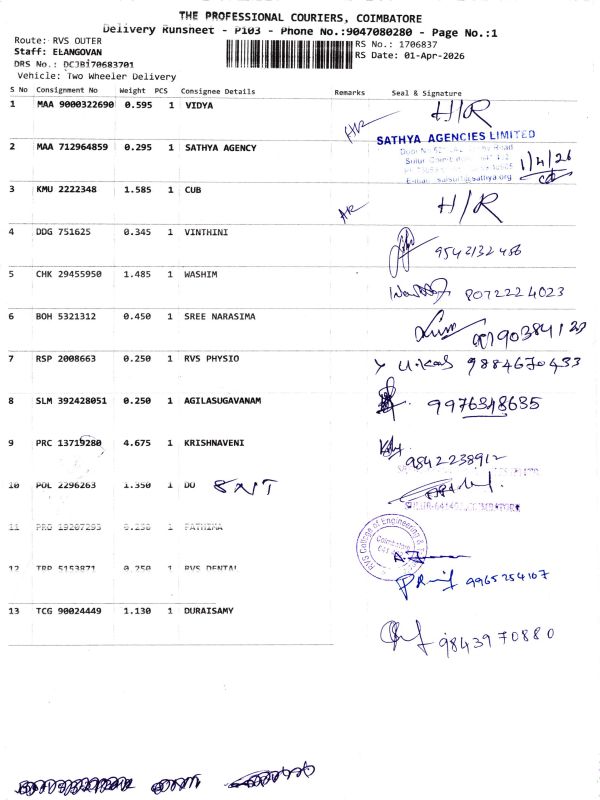 THE PROFESSIONAL COURIERS, COIMBATORE
Delivery Runsheet - P103 - Phone No.:9047080280 - Page No.:1
Route: RVS OUTER
RS No.: 1706837
Staff: ELANGOVAN
RS Date: 01-Apr-2026
DRS No.: DCJBI70683701
Vehicle: Two Wheeler Delivery
S No Consignment No Weight PCS Consignee Details Remarks Seal & Signature
1 MAA 9000322690 0.595 1 VIDYA H/R
SATHYA AGENCIES LIMITED
2 MAA 712964859 0.295 1 SATHYA AGENCY 1/4/26
3 KMU 2222348 1.585 1 CUB H/R
4 DDG 751625 0.345 1 VINTHINI 9542132486
5 CHK 29455950 1.485 1 WASHIM 8072224023
6 BOH 5321312 0.450 1 SREE NARASIMA
7 RSP 2008663 0.250 1 RVS PHYSIO 9884670433
8 SLM 392428051 0.250 1 AGILASUGAVANAM 9976348635
9 PRC 13719280 4.675 1 KRISHNAVENI 9842238912
10 POL 2296263 1.350 1 DO
11 PRO 19207293 0.250 1 FATHIMA
RVS College of Engineering &
Coimbatore
12 TRP 5153871 0.250 1 RVS DENTAL 9965254107
13 TCG 90024449 1.130 1 DURAISAMY 9843970880